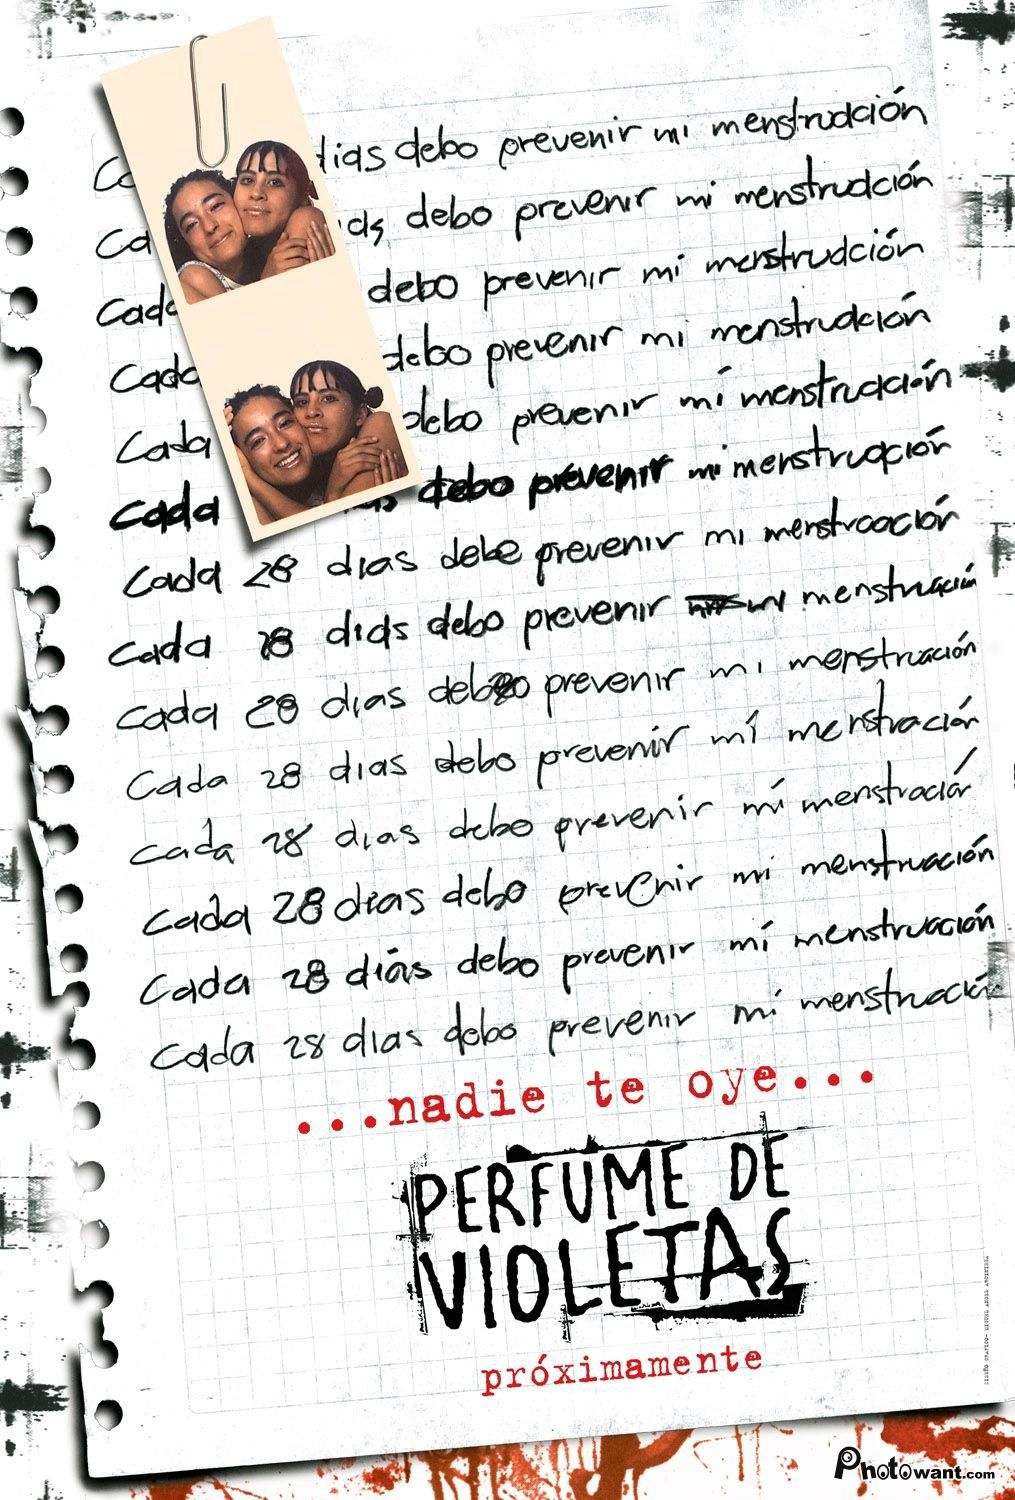 días debo prevenir mi menstrudción
debo prevenir mi menstrudción
Cada debo prevenir mi menstrudción
Cada debo prevenir mi menstrudción
Cada debo prevenir mi menstruación
Cada debo prevenir mi menstruación
Cada 28 días debe prevenir mi menstruación
Cada 28 días debo prevenir menstruación
Cada 28 días debo prevenir mi menstruación
Cada 28 días debo prevenir mí menstruación
Cada 28 días debo prevenir mi menstruación
Cada 28 días debo prevenir mi menstruación
Cada 28 días debo prevenir mí menstruación
Cada 28 días debo prevenir mi menstruación
...nadie te oye...
PERFUME DE
VIOLETAS
próximamente
Photowant.com